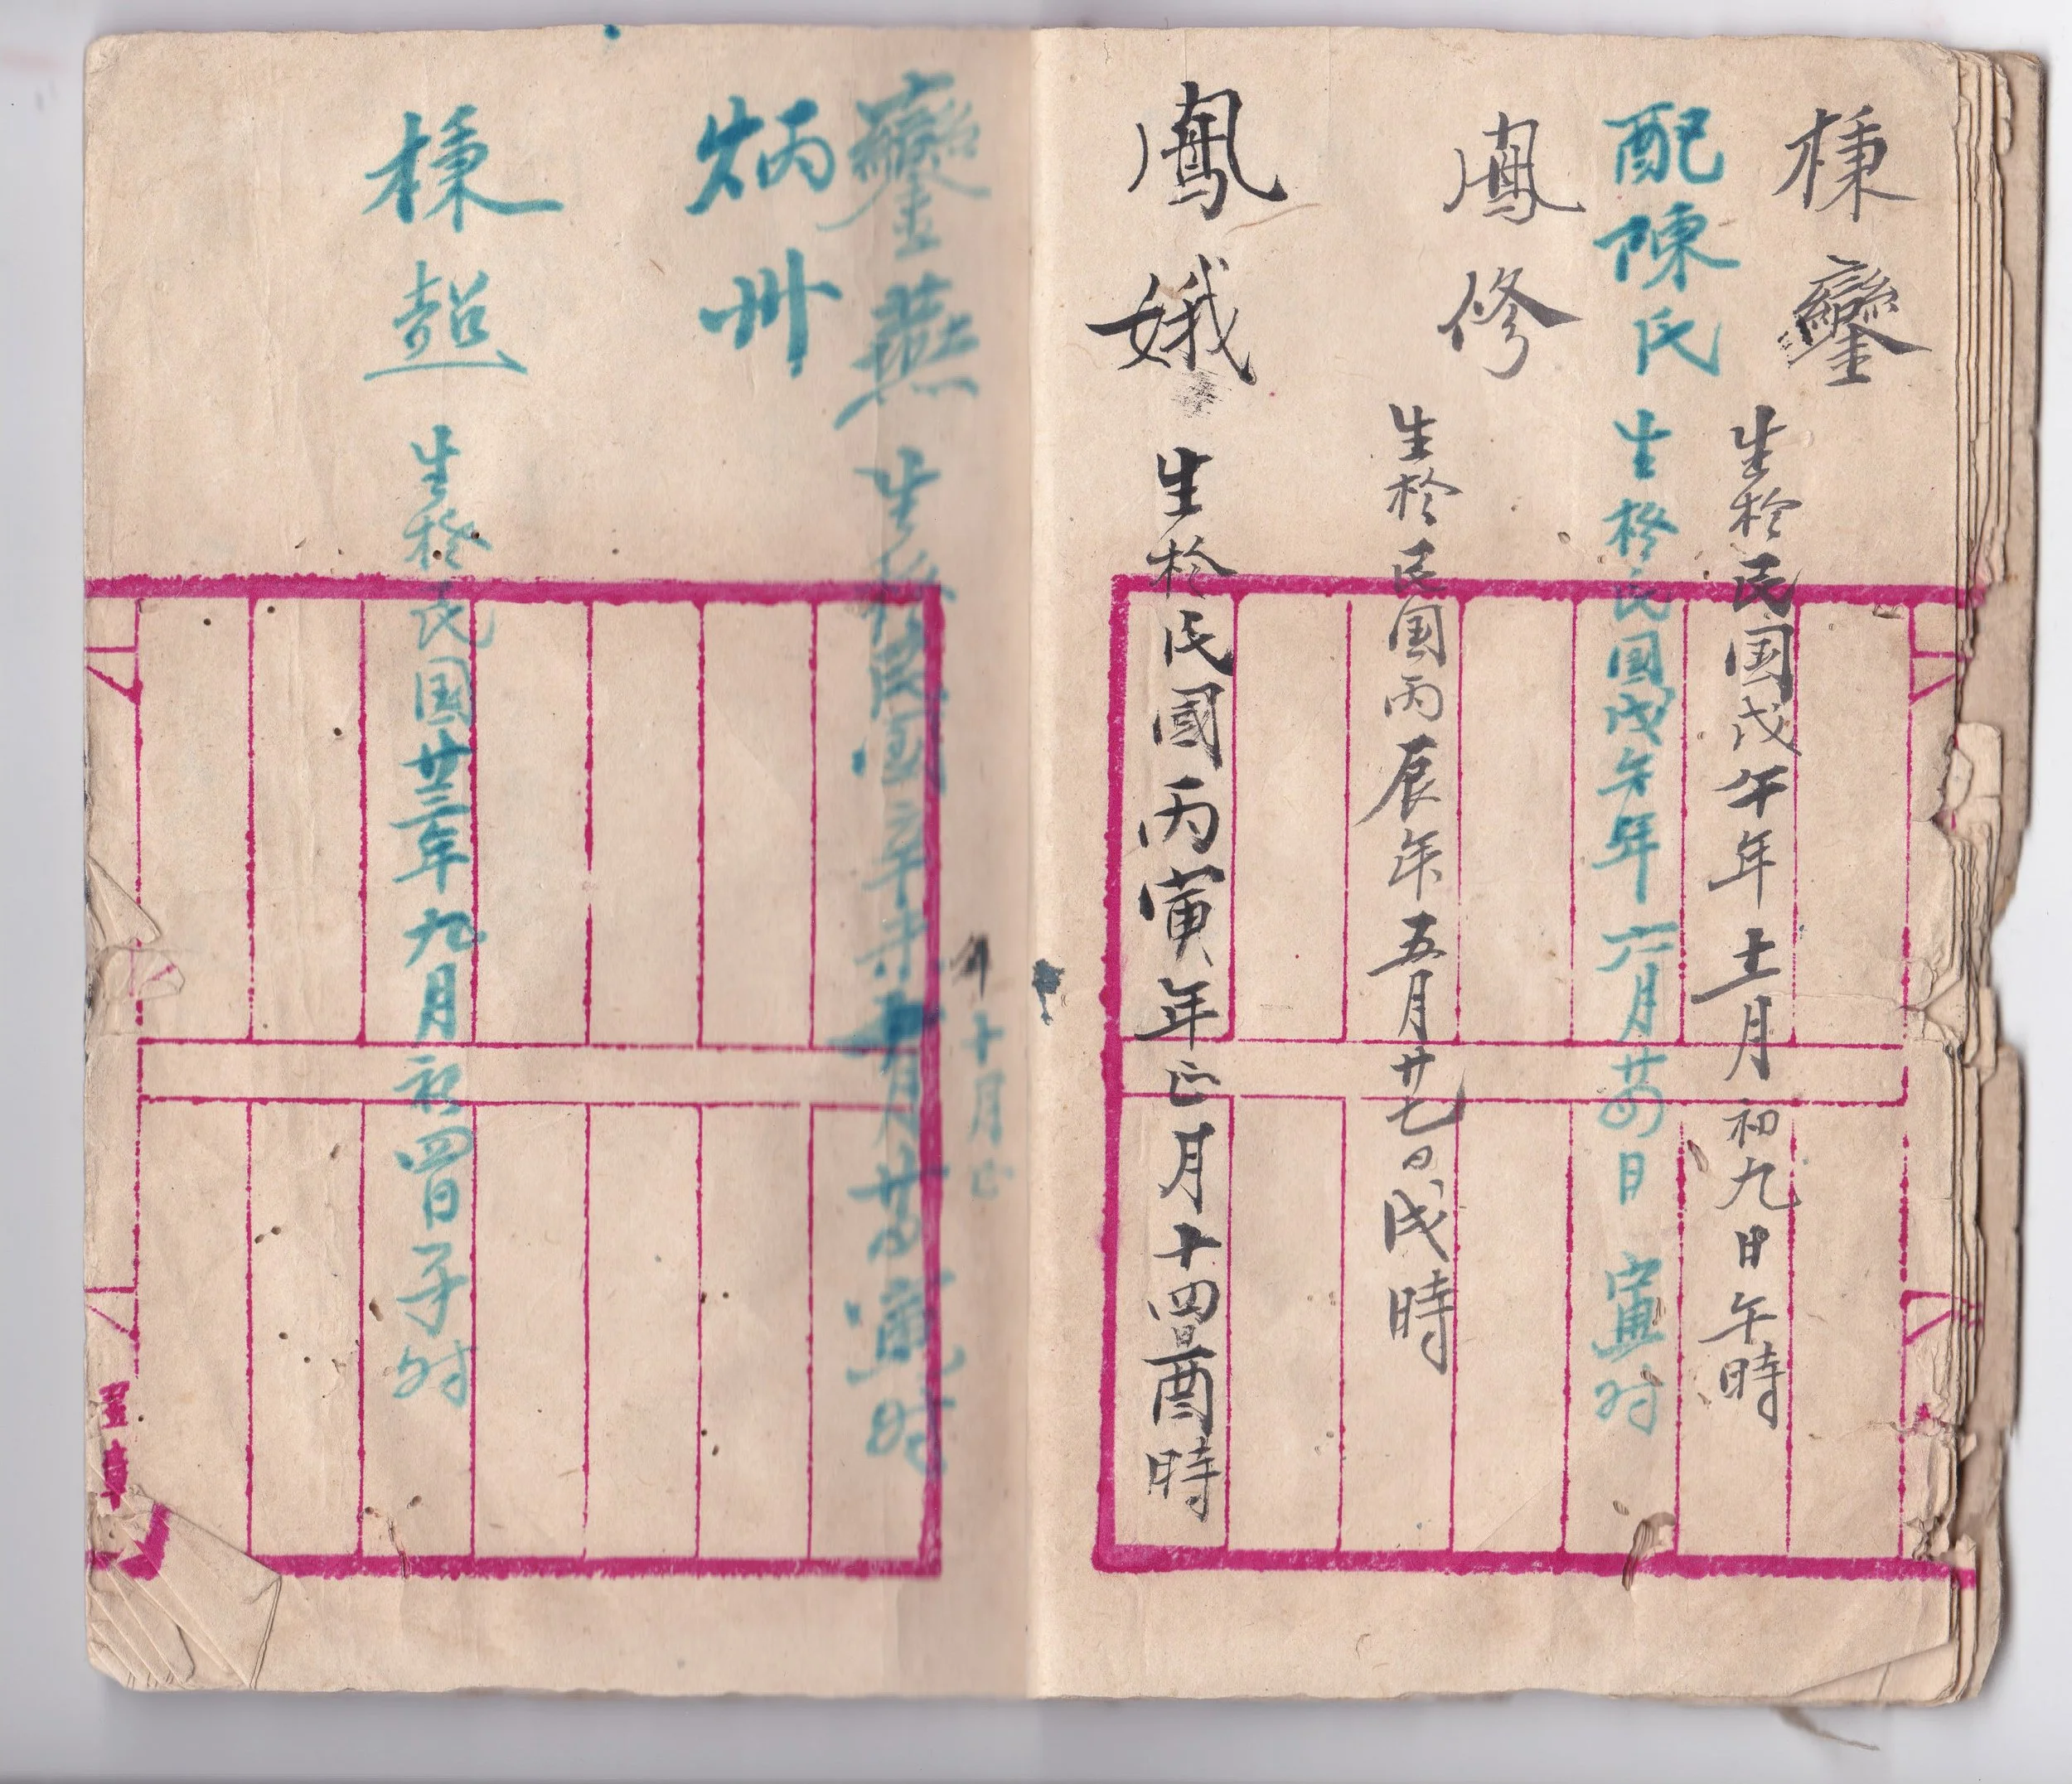 秉鑾 生於民国戊午年十二月初九日午時
配陳氏 生於民国戊午年六月廿四日寅时
鳳修 生於民国丙辰年五月廿七日戌時
鳳娥 生於民國丙寅年正月十四日酉時
鑾燕 生於民国辛未 月 寅时
年十月正
炳卅
秉超 生於民国廿三年九月初四日子时